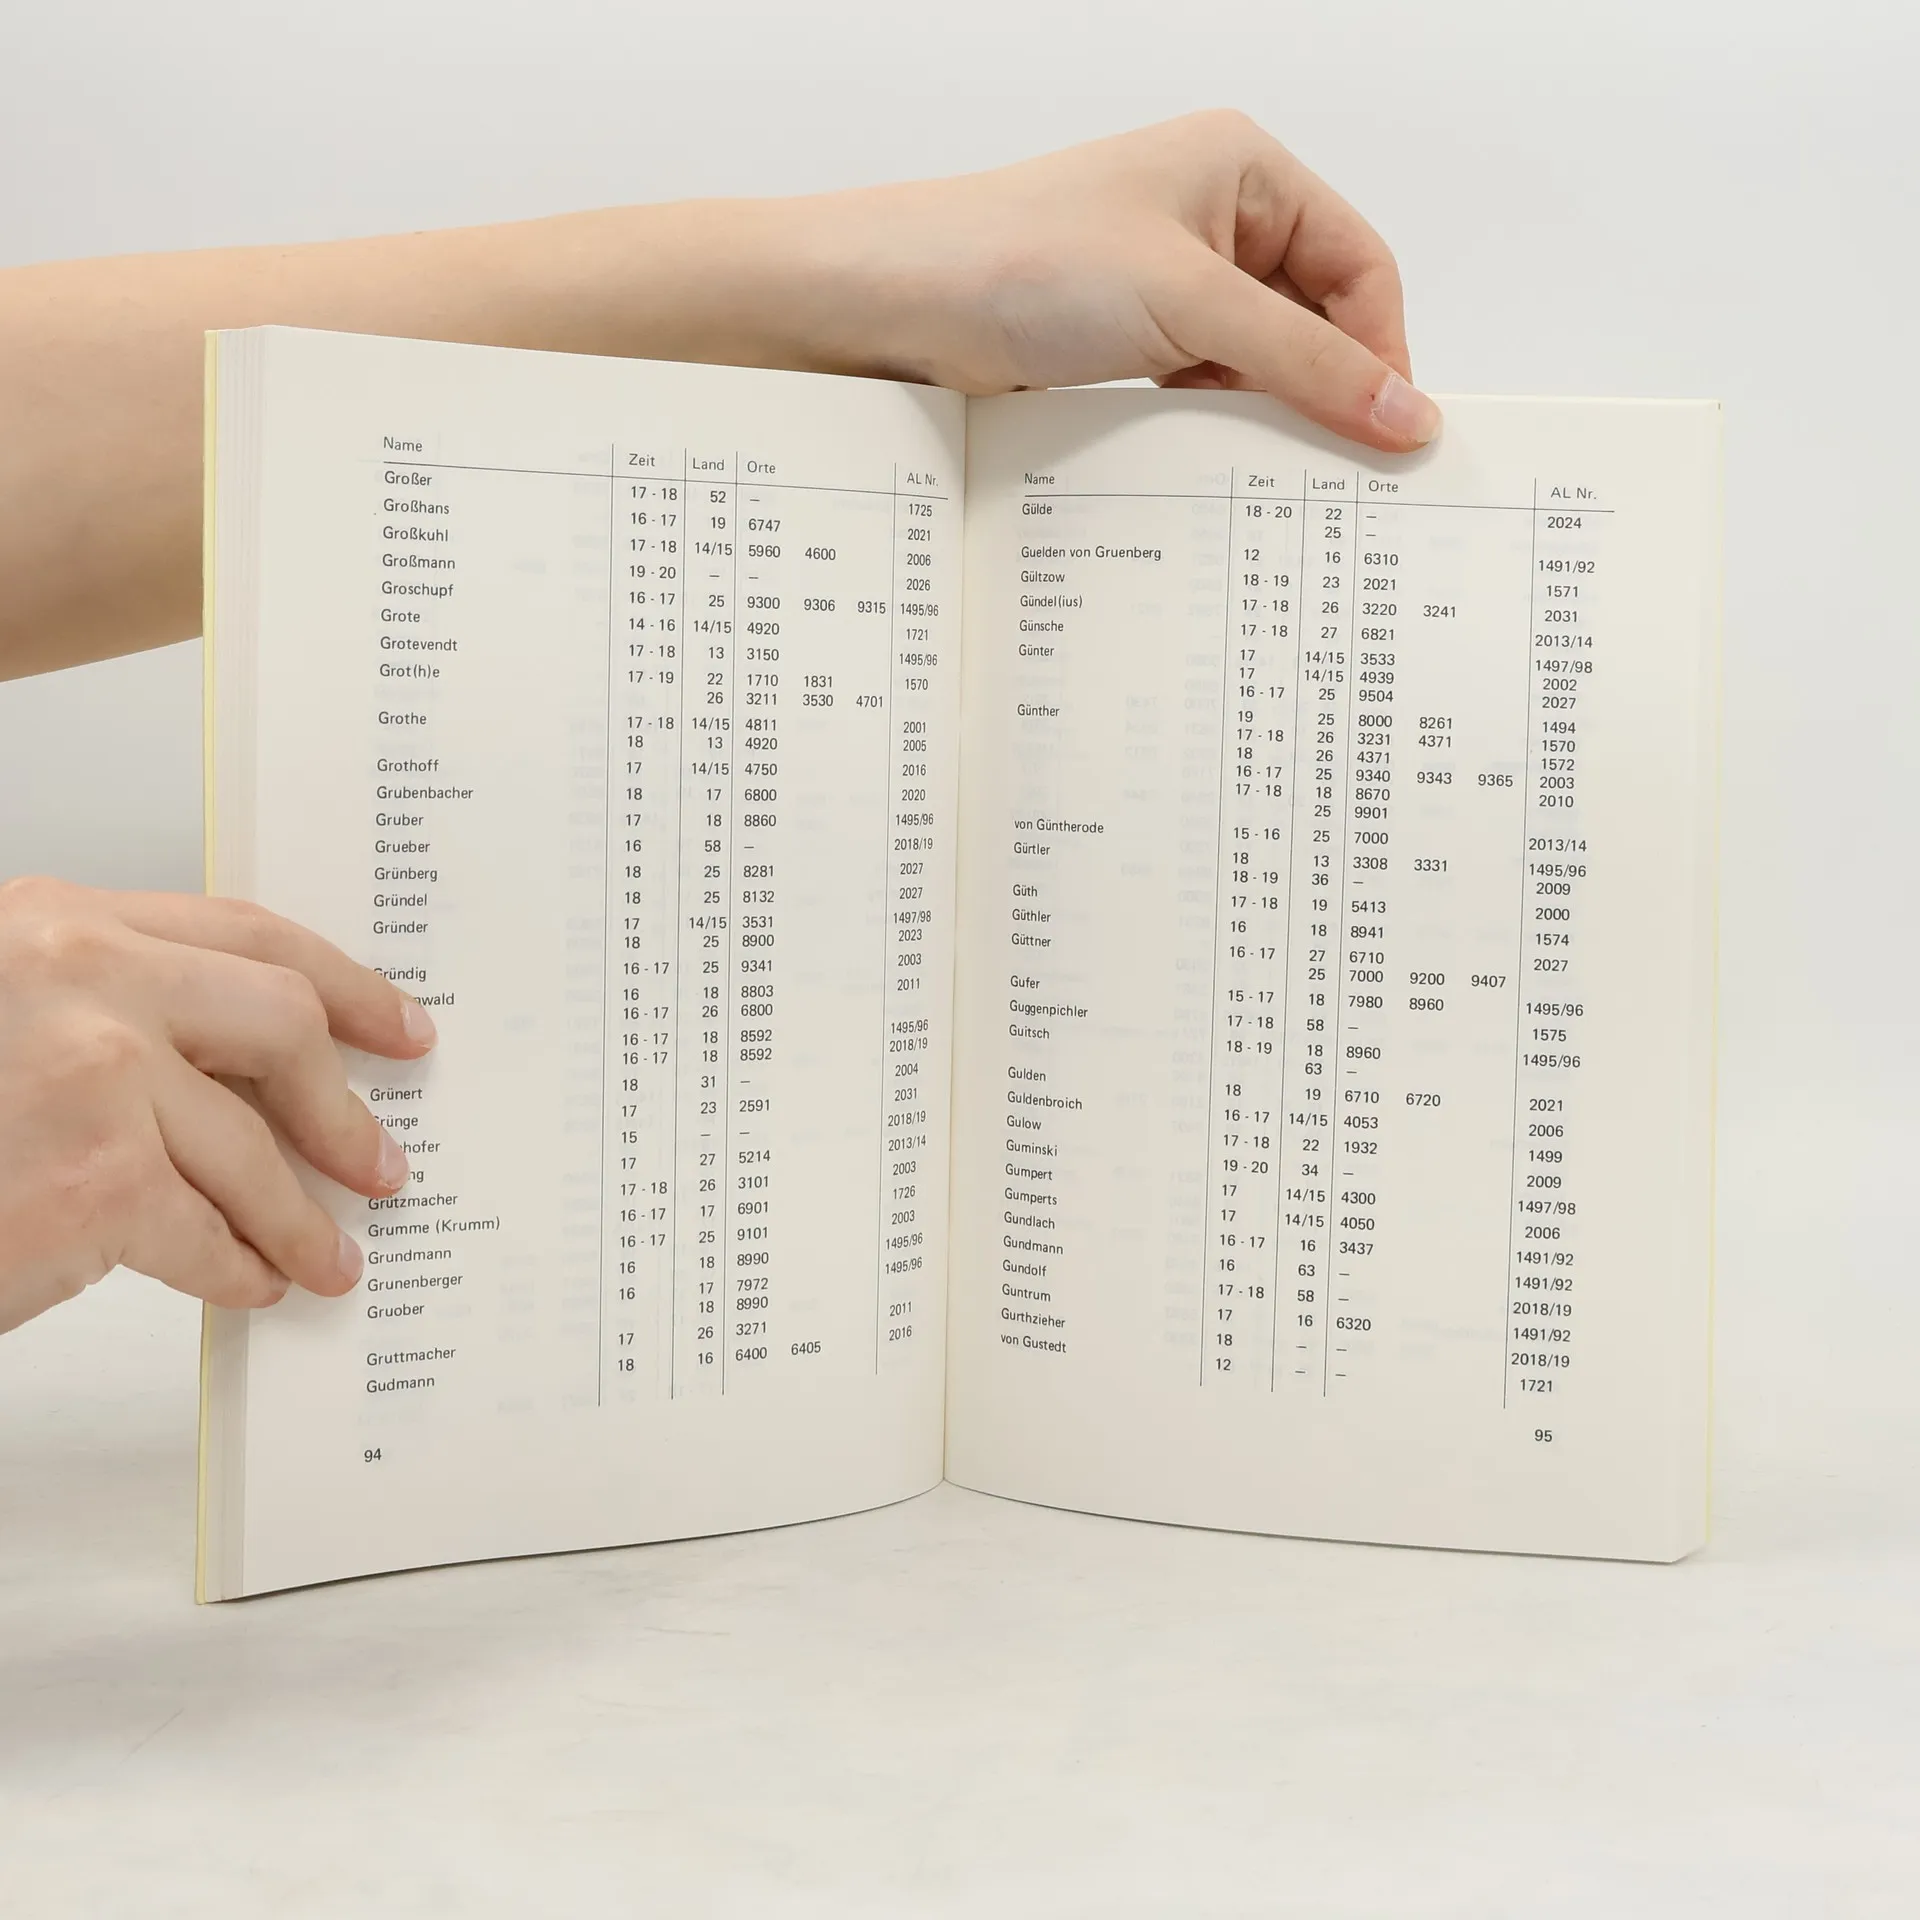 Name Zeit Land Orte AL Nr.
Großer 17 - 18 52 – 1725
Großhans 16 - 17 19 6747 2021
Großkuhl 17 - 18 14/15 5960 4600 2006
Großmann 19 - 20 – – 2026
Groschupf 16 - 17 25 9300 9306 9315 1495/96
Grote 14 - 16 14/15 4920 1721
Grotevendt 17 - 18 13 3150 1495/96
Grot(h)e 17 - 19 22 1710 1831 1570
26 3211 3530 4701
Grothe 17 - 18 14/15 4811 2001
18 13 4920 2005
Grothoff 17 14/15 4750 2016
Grubenbacher 18 17 6800 2020
Gruber 17 18 8860 1495/96
Grueber 16 58 – 2018/19
Grünberg 18 25 8281 2027
Gründel 18 25 8132 2027
Gründer 17 14/15 3531 1497/98
18 25 8900 2023
Gründig 16 - 17 25 9341 2003
16 18 8803 2011
16 - 17 26 6800
16 - 17 18 8592 1495/96
16 - 17 18 8592 2018/19
Grünert 18 31 – 2004
Grünge 17 23 2591 2031
15 – – 2018/19
17 27 5214 2013/14
Grützmacher 17 - 18 26 3101 2003
Grumme (Krumm) 16 - 17 17 6901 1726
Grundmann 16 - 17 25 9101 2003
Grunenberger 16 18 8990 1495/96
Gruober 16 17 7972 1495/96
18 8990
Gruttmacher 17 26 3271 2011
Gudmann 18 16 6400 6405 2016
94
Name Zeit Land Orte AL Nr.
Gülde 18 - 20 22 – 2024
25 –
Guelden von Gruenberg 12 16 6310 1491/92
Gültzow 18 - 19 23 2021 1571
Gündel(ius) 17 - 18 26 3220 3241 2031
Günsche 17 - 18 27 6821 2013/14
Günter 17 14/15 3533 1497/98
17 14/15 4939 2002
16 - 17 25 9504 2027
Günther 19 25 8000 8261 1494
17 - 18 26 3231 4371 1570
18 26 4371 1572
16 - 17 25 9340 9343 9365 2003
17 - 18 18 8670 2010
25 9901
von Güntherode 15 - 16 25 7000 2013/14
Gürtler 18 13 3308 3331 1495/96
18 - 19 36 – 2009
Güth 17 - 18 19 5413 2000
Güthler 16 18 8941 1574
Güttner 16 - 17 27 6710 2027
25 7000 9200 9407
Gufer 15 - 17 18 7980 8960 1495/96
Guggenpichler 17 - 18 58 – 1575
Guitsch 18 - 19 18 8960 1495/96
63 –
Gulden 18 19 6710 6720 2021
Guldenbroich 16 - 17 14/15 4053 2006
Gulow 17 - 18 22 1932 1499
Guminski 19 - 20 34 – 2009
Gumpert 17 14/15 4300 1497/98
Gumperts 17 14/15 4050 2006
Gundlach 16 - 17 16 3437 1491/92
Gundmann 16 63 – 1491/92
Gundolf 17 - 18 58 – 2018/19
Guntrum 17 16 6320 1491/92
Gurthzieher 18 – – 2018/19
von Gustedt 12 – – 1721
95